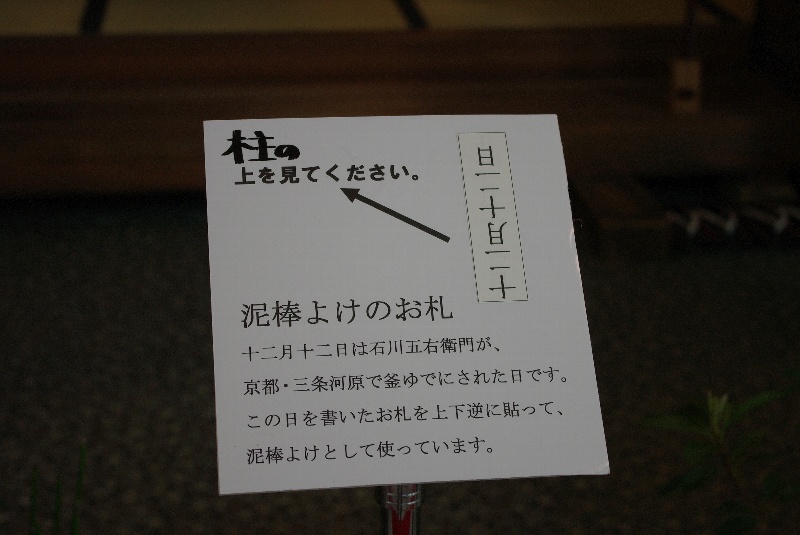 柱の
上を見てください。
十二月十二日
泥棒よけのお札
十二月十二日は石川五右衛門が、
京都・三条河原で釜ゆでにされた日です。
この日を書いたお札を上下逆に貼って、
泥棒よけとして使っています。